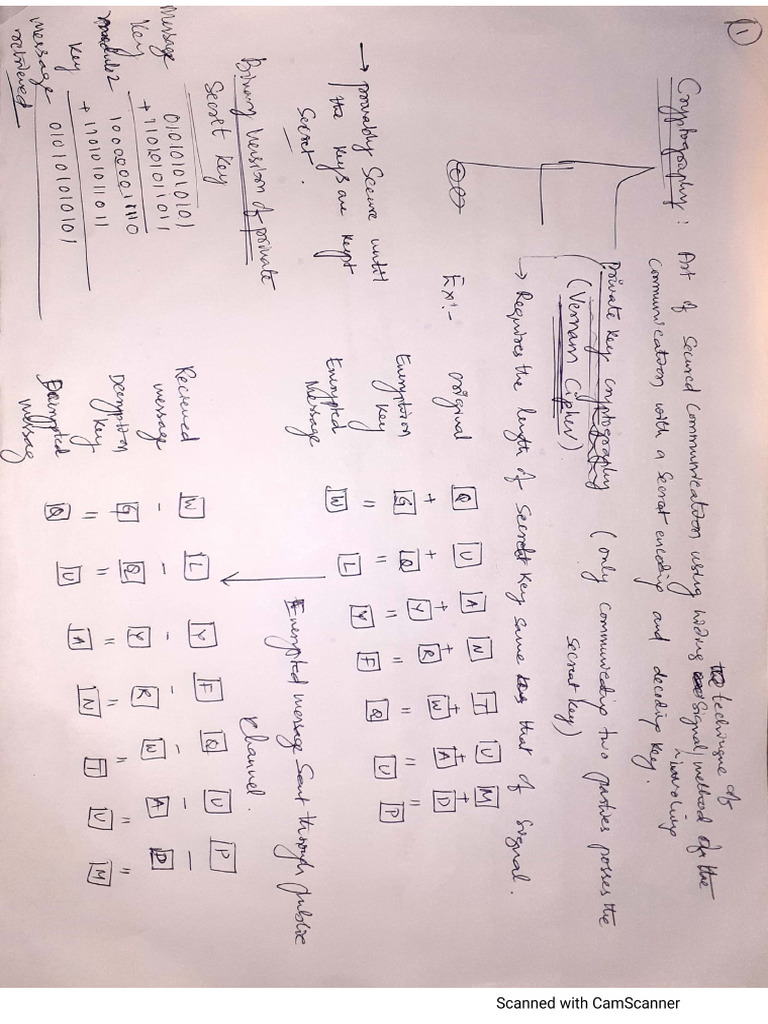 1
Cryptography : Art of secured communication using hiding technique of
signal / method of the involving
communication with a secret encoding and decoding key.
Private key cryptography (only communicating two parties posses the
secret key)
(Vernam Cipher)
→ Requires the length of secret key same as that of signal.
→ provably secure until
the keys are kept
secret.
Ex:-
original Q U A N T U M
+ + + + + + +
Encryption key G Q Y R W A D
= = = = = = =
Encrypted Message W L Y F Q U P
Encrypted message sent through public
channel.
Recieved message W L Y F Q U P
- - - - - - -
Decryption key G Q Y R W A D
= = = = = = =
Decrypted messag Q U A N T U M
Binary Version of private
Secret key
Message 0101010101
Key + 11010101011
modulo 2 10000001110
key + 11010101011
message retrieved 01010101010 1
Scanned with CamScanner